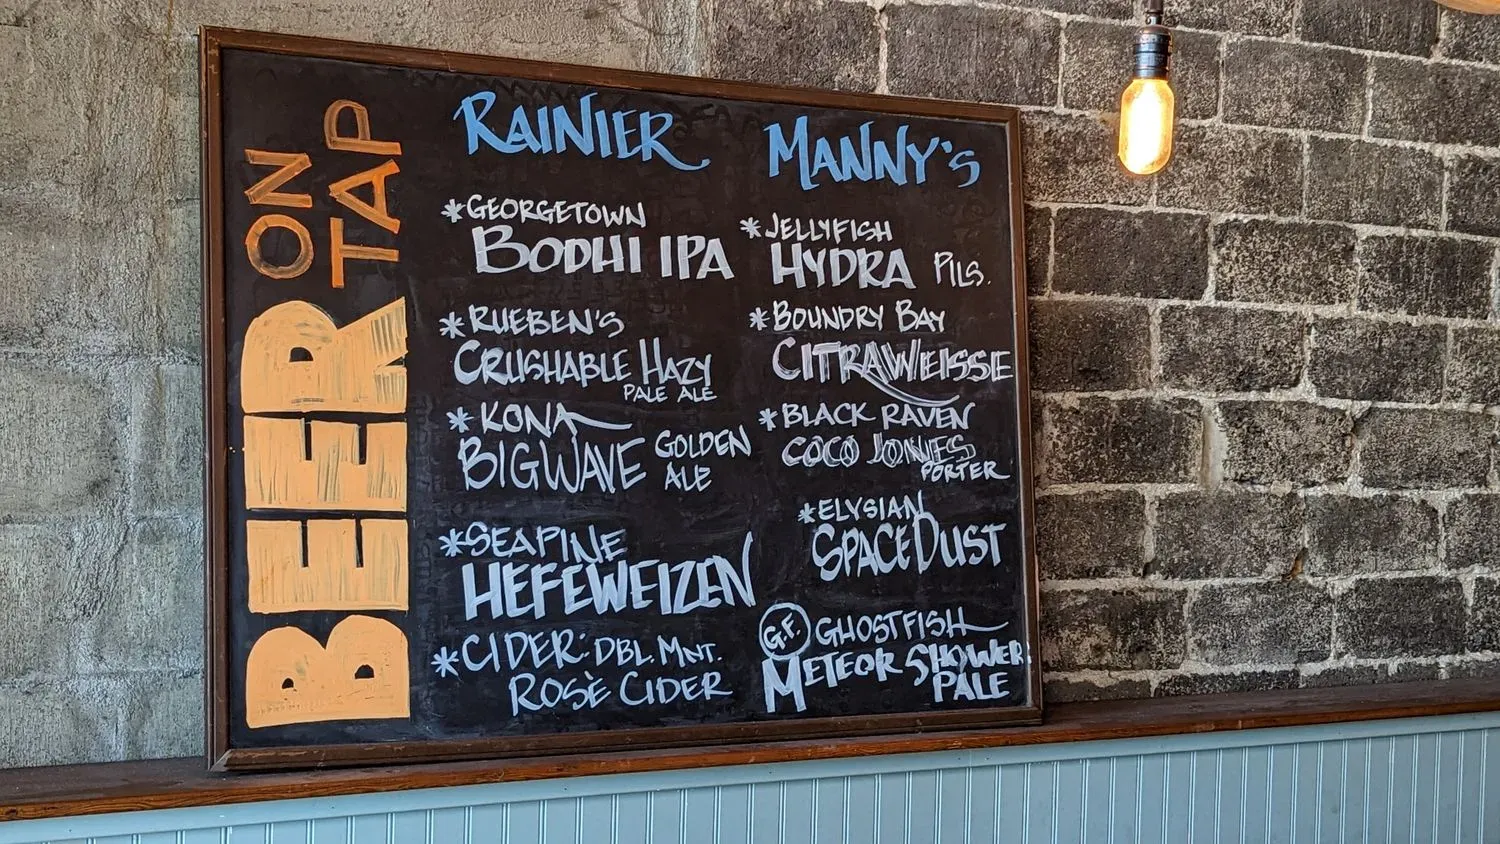 BEER ON TAP
RAINIER
*GEORGETOWN
BODHI IPA
*RUEBEN'S
CRUSHABLE HAZY
PALE ALE
*KONA
BIGWAVE GOLDEN
ALE
*SEAPINE
HEFEWEIZEN
*CIDER: DBL. MNT.
ROSÈ CIDER
MANNY'S
*JELLYFISH
HYDRA PILS.
*BOUNDRY BAY
CITRAWEISSE
*BLACK RAVEN
COCO JONES
PORTER
*ELYSIAN
SPACE DUST
G.F. GHOSTFISH
METEOR SHOWER
PALE